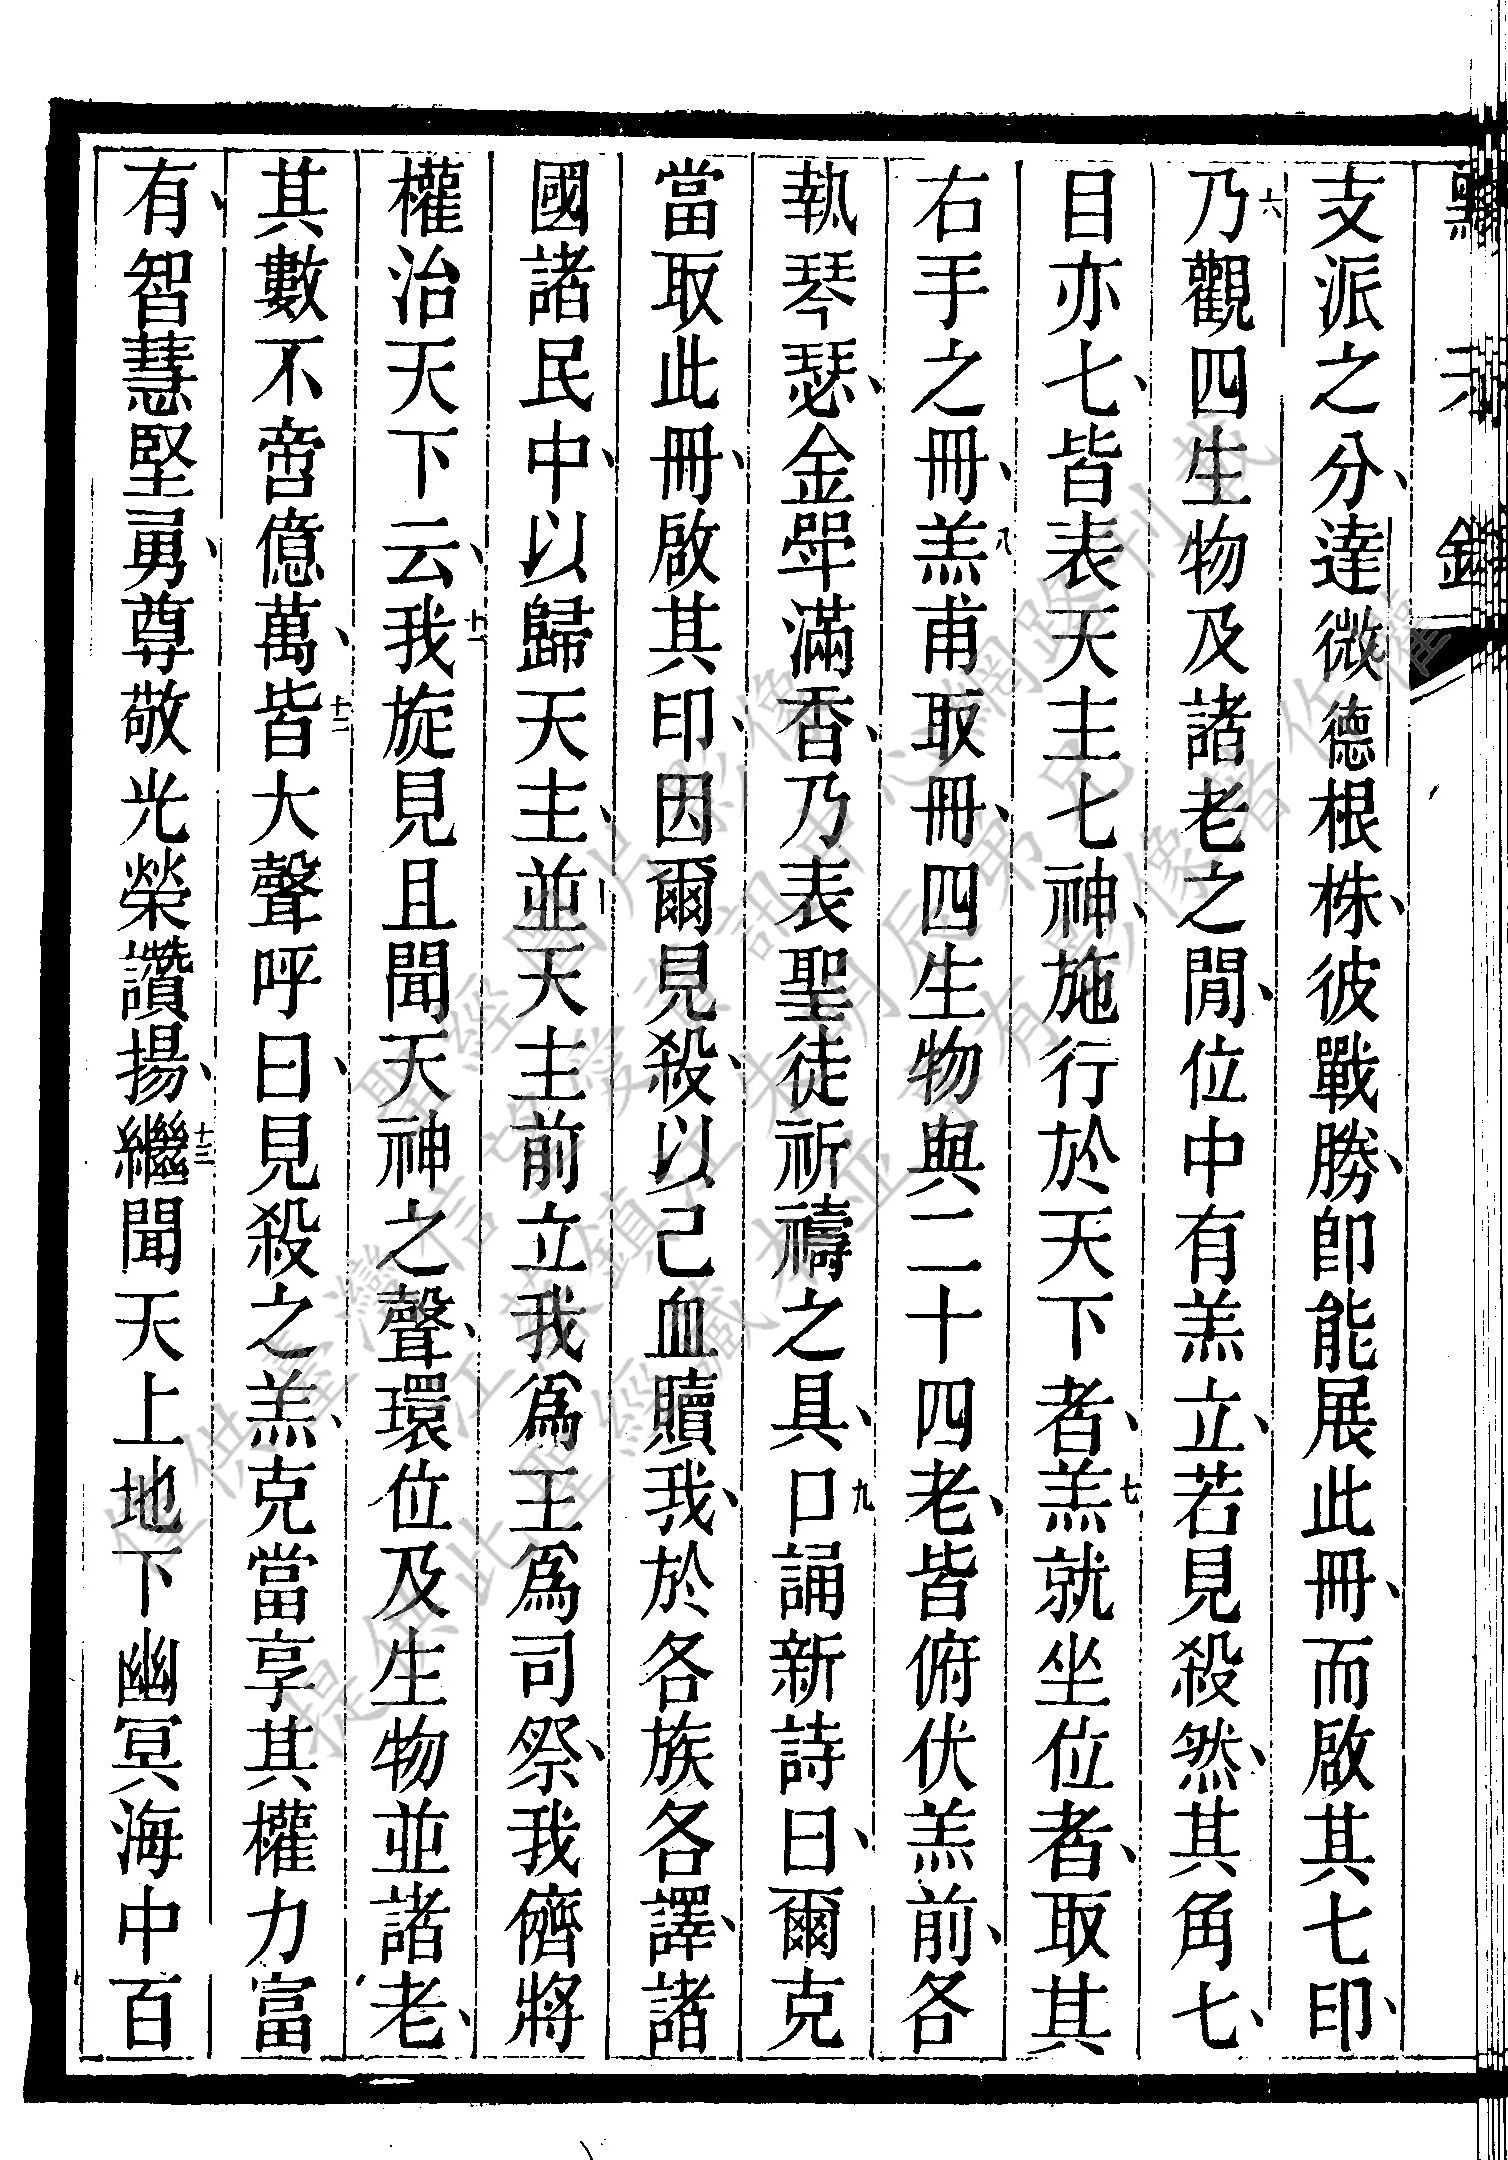 支派之分、達微德根株、彼戰勝、卽能展此冊、而啟其七印、
六乃觀四生物及諸老之閒、位中有羔立、若見殺然、其角七、
目亦七、皆表天主七神、施行於天下者、七羔就坐位者、取其
右手之冊、八羔甫取冊、四生物與二十四老、皆俯伏羔前、各
執琴瑟、金斝滿香、乃表聖徒祈禱之具、九口誦新詩曰、爾克
當取此冊、啟其印、因爾見殺、以己血贖我、於各族各譯、諸
國諸民中、以歸天主、並天主前立我爲王爲司祭、我儕將
權治天下云、十一我旋見且聞天神之聲、環位及生物並諸老、
其數不啻億萬、十二皆大聲呼曰、見殺之羔、克當享其權力富
有、智慧堅勇、尊敬光榮讚揚、十三繼聞天上地下幽冥海中百